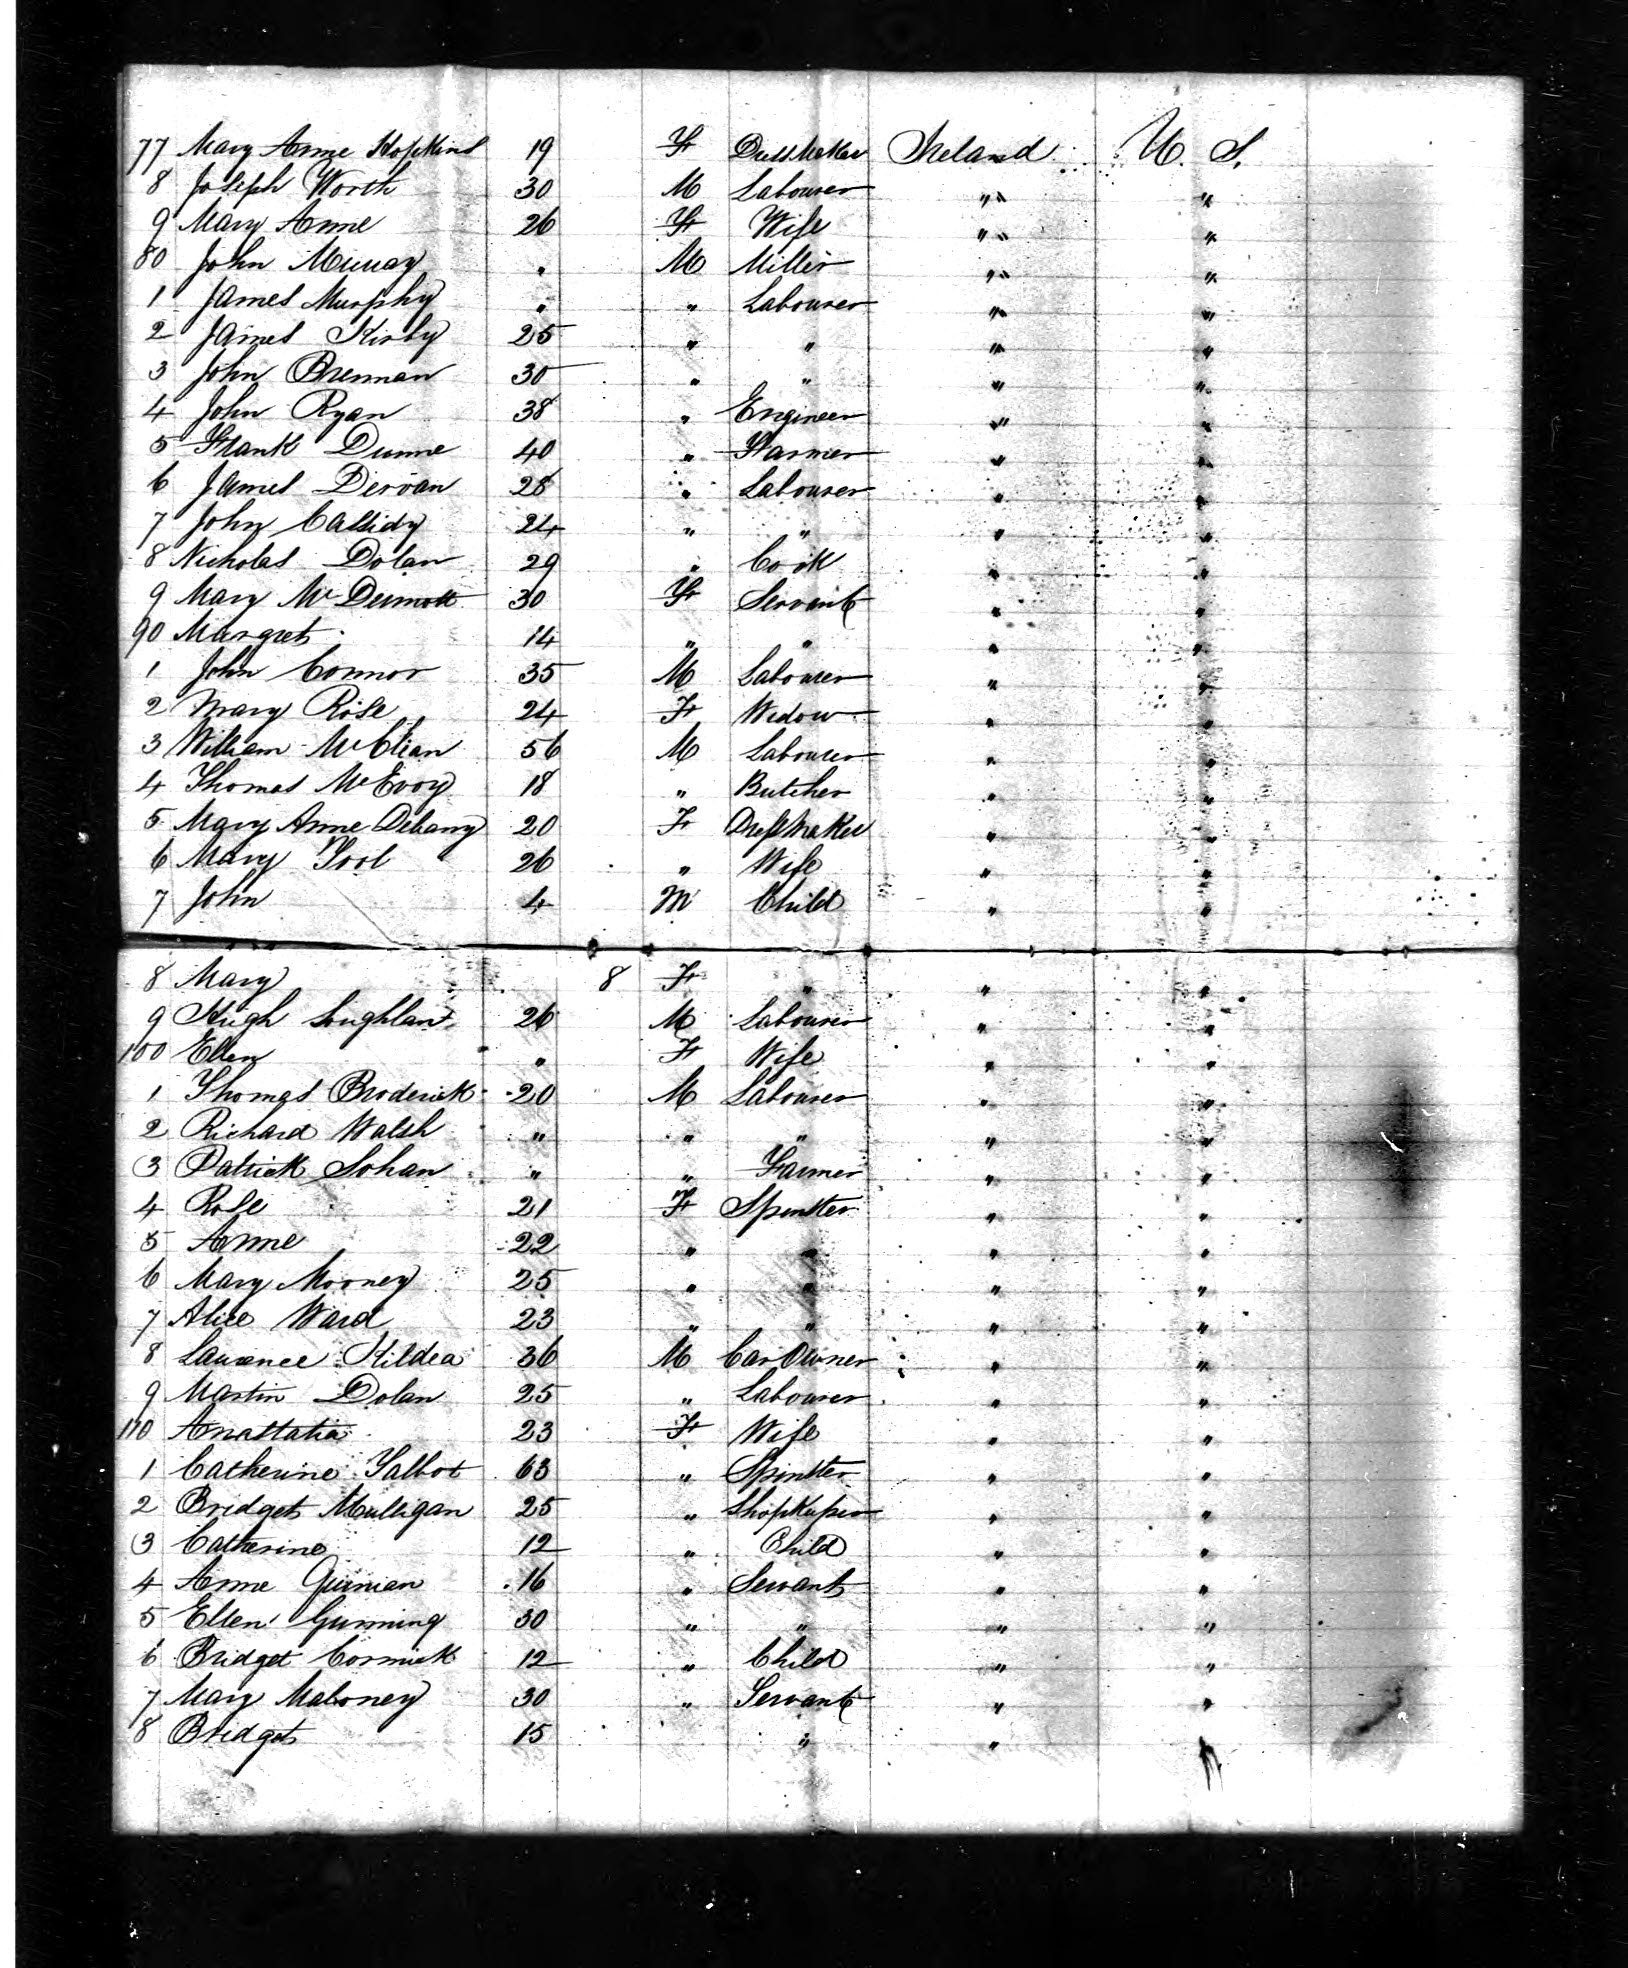 77 Mary Anne Hopkins 19 F Dressmaker Ireland U. S.
8 Joseph Worth 30 M Labourer " "
9 Mary Anne 26 F Wife " "
80 John Murray " M Miller " "
1 James Murphy " " Labourer " "
2 James Kirby 25 " " " "
3 John Brennan 30 " " " "
4 John Ryan 38 " Engineer " "
5 Frank Dunne 40 " Farmer " "
6 James Dervan 28 " Labourer " "
7 John Cassidy 24 " " " "
8 Nicholas Dolan 29 " Cook " "
9 Mary McDermott 30 F Servant " "
90 Margret 14 " " " "
1 John Connor 35 M Labourer " "
2 Mary Rose 24 F Widow " "
3 William 56 M Labourer " "
4 Thomas McEvoy 18 " Butcher " "
5 Mary Anne Delany 20 F Dressmaker " "
6 Mary Tool 26 " Wife " "
7 John 4 M Child " "
8 Mary 8 F " " "
9 Hugh 26 M Labourer " "
100 Ellen " F Wife " "
1 Thomas Broderick 20 M Labourer " "
2 Richard Walsh " " " " "
3 Patrick Sohan " " Farmer " "
4 Rose 21 F Spinster " "
5 Anne 22 " " " "
6 Mary Mooney 25 " " " "
7 Alice Ward 23 " " " "
8 Laurence Kildea 36 M Car Owner " "
9 Martin Dolan 25 " Labourer " "
110 Anastatia 23 F Wife " "
1 Catherine Talbot 63 " Spinster " "
2 Bridget Mulligan 25 " Shopkeeper " "
3 Catherine 12 " Child " "
4 Anne Guinian 16 " Servant " "
5 Ellen Gunning 30 " " " "
6 Bridget Cormick 12 " Child " "
7 Mary Maloney 30 " Servant " "
8 Bridget 15 " " "